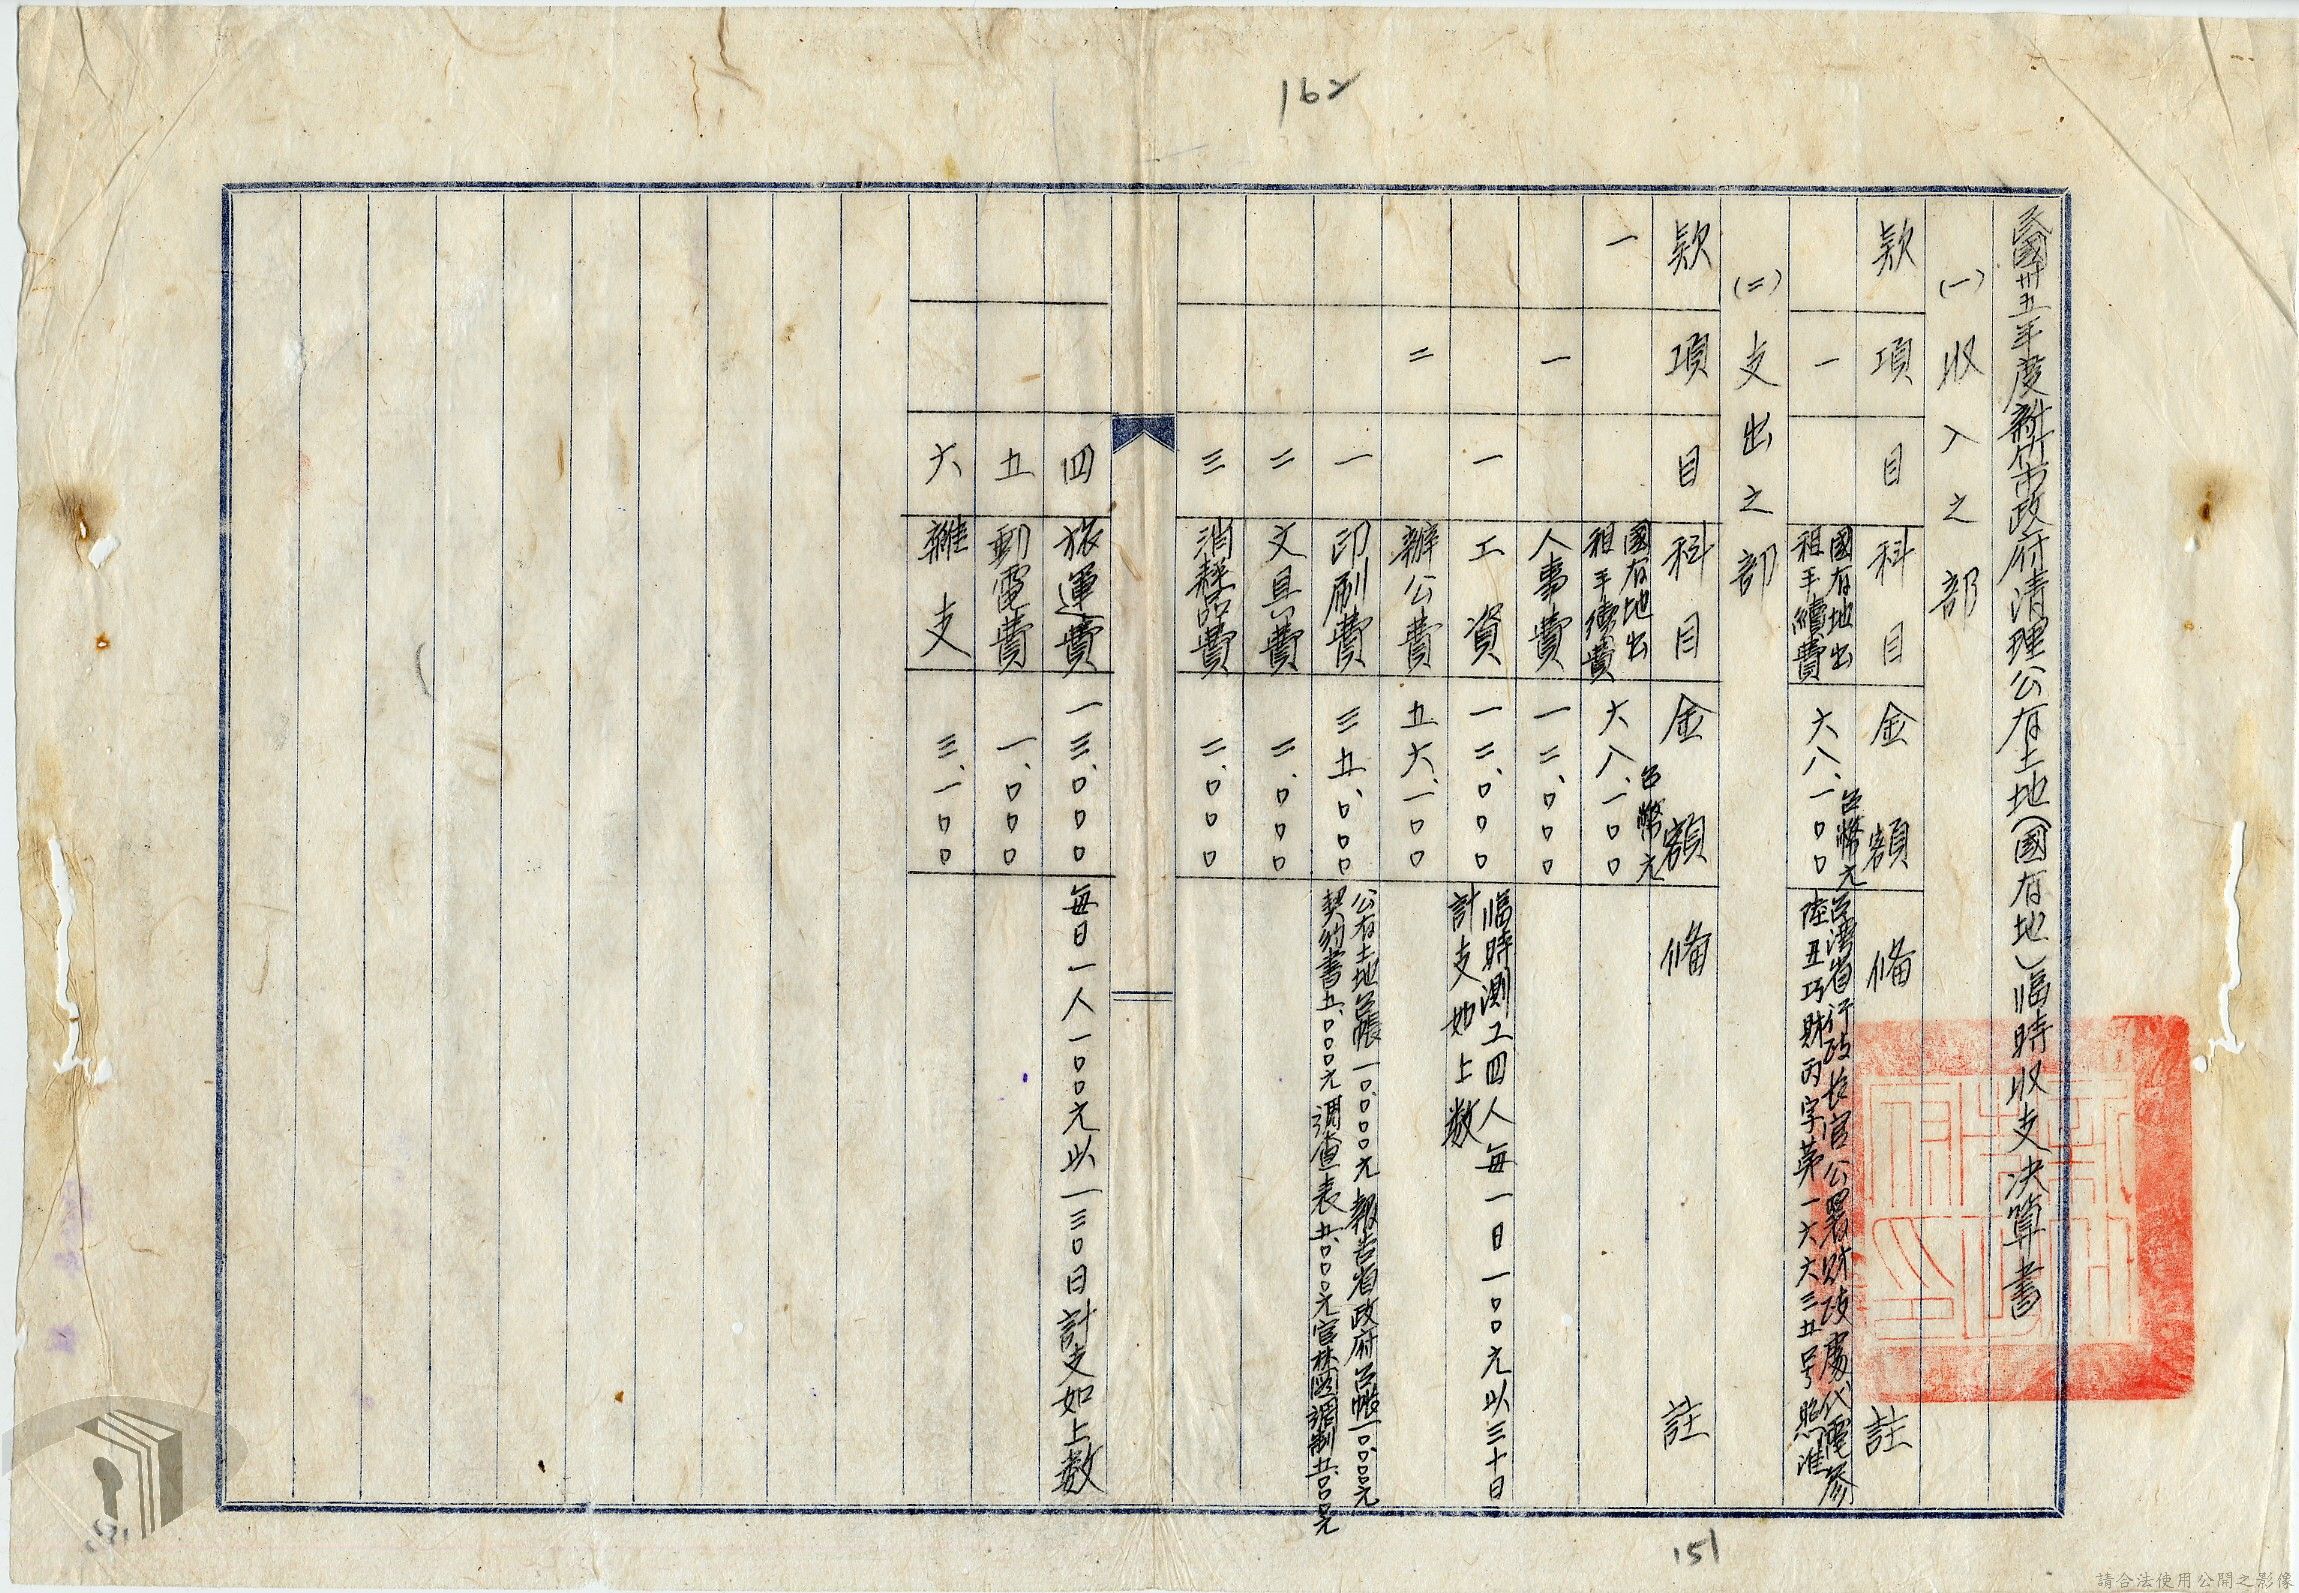 162
民國卅五年度新竹市政府清理公有土地(國有地)臨時收支決算書
(一)收入之部
款 項 目 科目 金額 備註
一 國有地出租手續費 台幣元 六八、一〇〇 台灣省行政長官公署財政處代電參陸丑巧財丙字第一六六三五号照准
(二)支出之部
款 項 目 科目 金額 備註
一 國有地出租手續費 台幣元 六八、一〇〇
一 人事費 一二、〇〇〇
一 工資 一二、〇〇〇 臨時測工四人每一日一〇〇元以三十日計支如上数
二 辦公費 五六、一〇〇
一 印刷費 三五、〇〇〇 公有土地台帳一〇、〇〇〇元報告省政府台帳一〇、〇〇〇元契約書五、〇〇〇元調查表五、〇〇〇元官林圖調制五、〇〇〇元
二 文具費 二、〇〇〇
三 消耗品費 二、〇〇〇
四 旅運費 一三、〇〇〇 每日一人一〇〇元以一三〇日計支如上数
五 郵電費 一、〇〇〇
六 雜支 三、一〇〇
151
請合法使用公開之影像